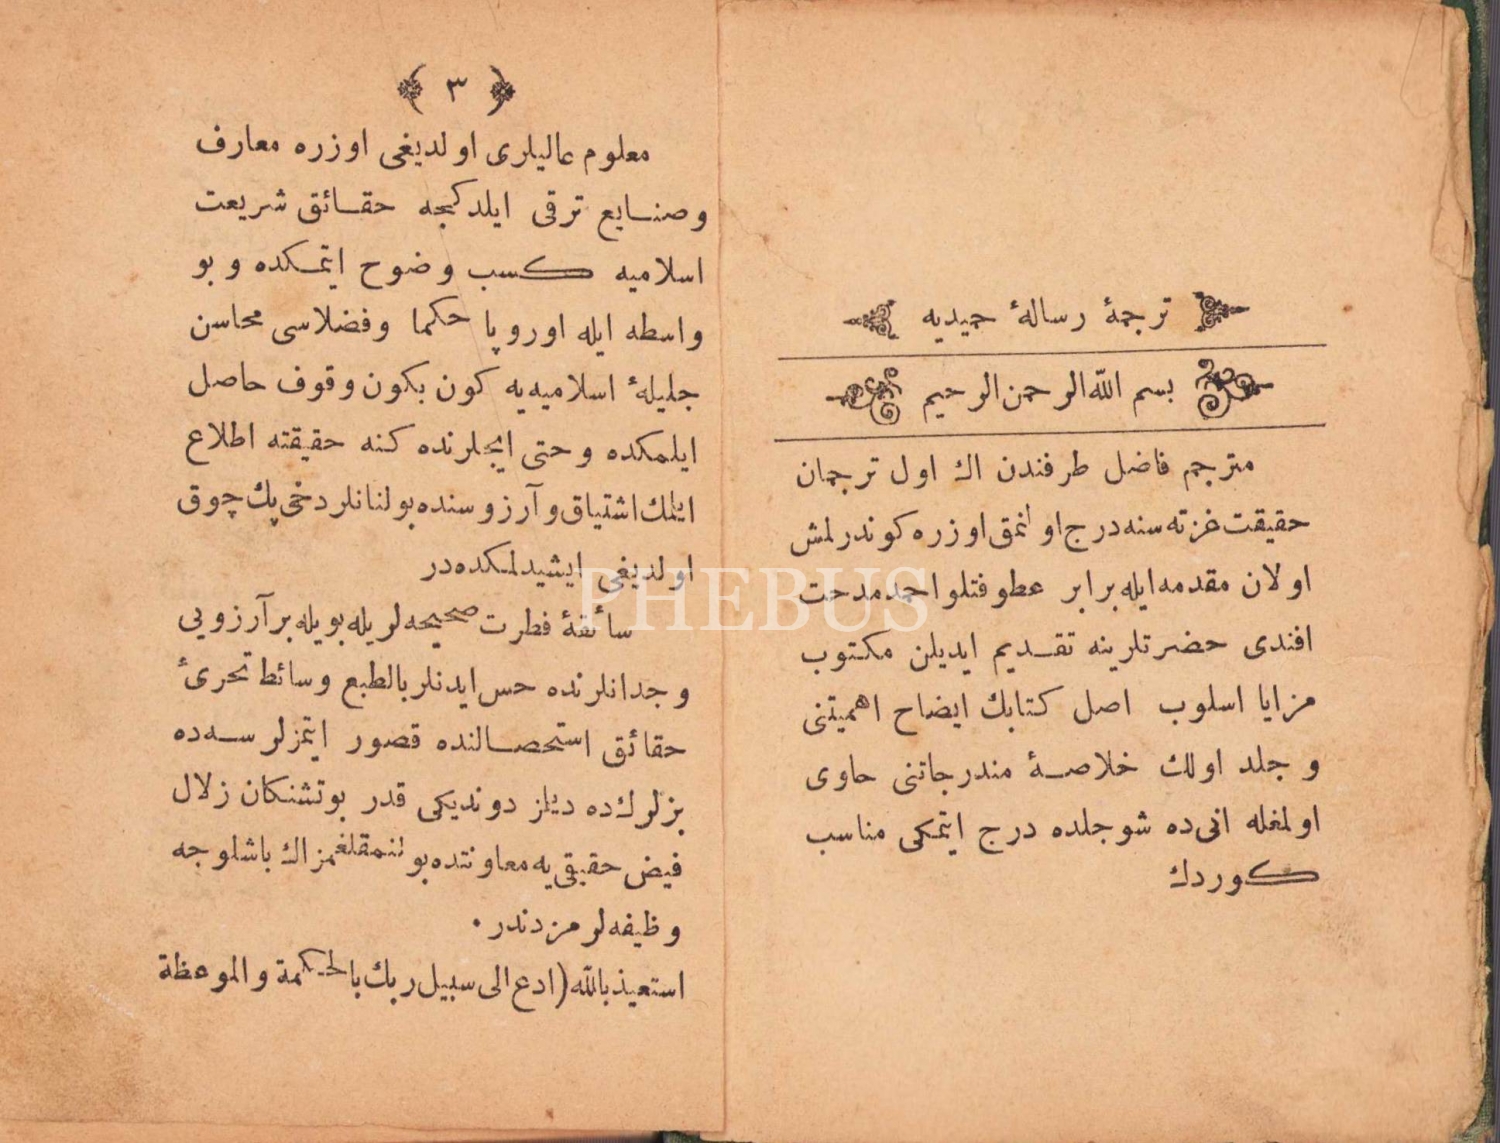 ترجمۀ رسالۀ حمیدیه
بسم الله الرحمن الرحیم
مترجم فاضل طرفندن اك اول ترجمان
حقیقت غزته سنه درج اولنمق اوزره كوندرلمش
اولان مقدمه ایله برابر عطوفتلو احمد مدحت
افندی حضرتلرینه تقدیم ایدیلن مكتوب
مزایا اسلوب اصل كتابك ایضاح اهمیتنی
و جلد اولك خلاصۀ مندرجاتنی حاوی
اولمغله انی ده شو جلده درج ایتمكی مناسب
كوردك
﴿ ٣ ﴾
معلوم عالیلری اولدیغی اوزره معارف
و صنایع ترقی ایلدكجه حقائق شریعت
اسلامیه كسب وضوح ایتمكده و بو
واسطه ایله اوروپا حكما و فضلاسی محاسن
جلیلۀ اسلامیه یه كون بكون وقوف حاصل
ایلمكده و حتی ایچلرنده كنه حقیقته اطلاع
ایلمك اشتیاق و آرزوسنده بولنانلر دخی پك چوق
اولدیغی ایشیدلمكده در
سائقۀ فطرت صحیحه لریله بویله بر آرزویی
وجدانلرنده حس ایدنلر بالطبع وسائط تحرئ
حقائق استحصالنده قصور ایتمزلرسه ده
بزلرك ده دیلز دوندیكی قدر بو تشنكان زلال
فیض حقیقی یه معاونتده بولنمقلغمز اك باشلوجه
وظیفه لرمزدندر ٠
استعیذ بالله (ادع الی سبیل ربك بالحكمة والموعظة
PHEBUS